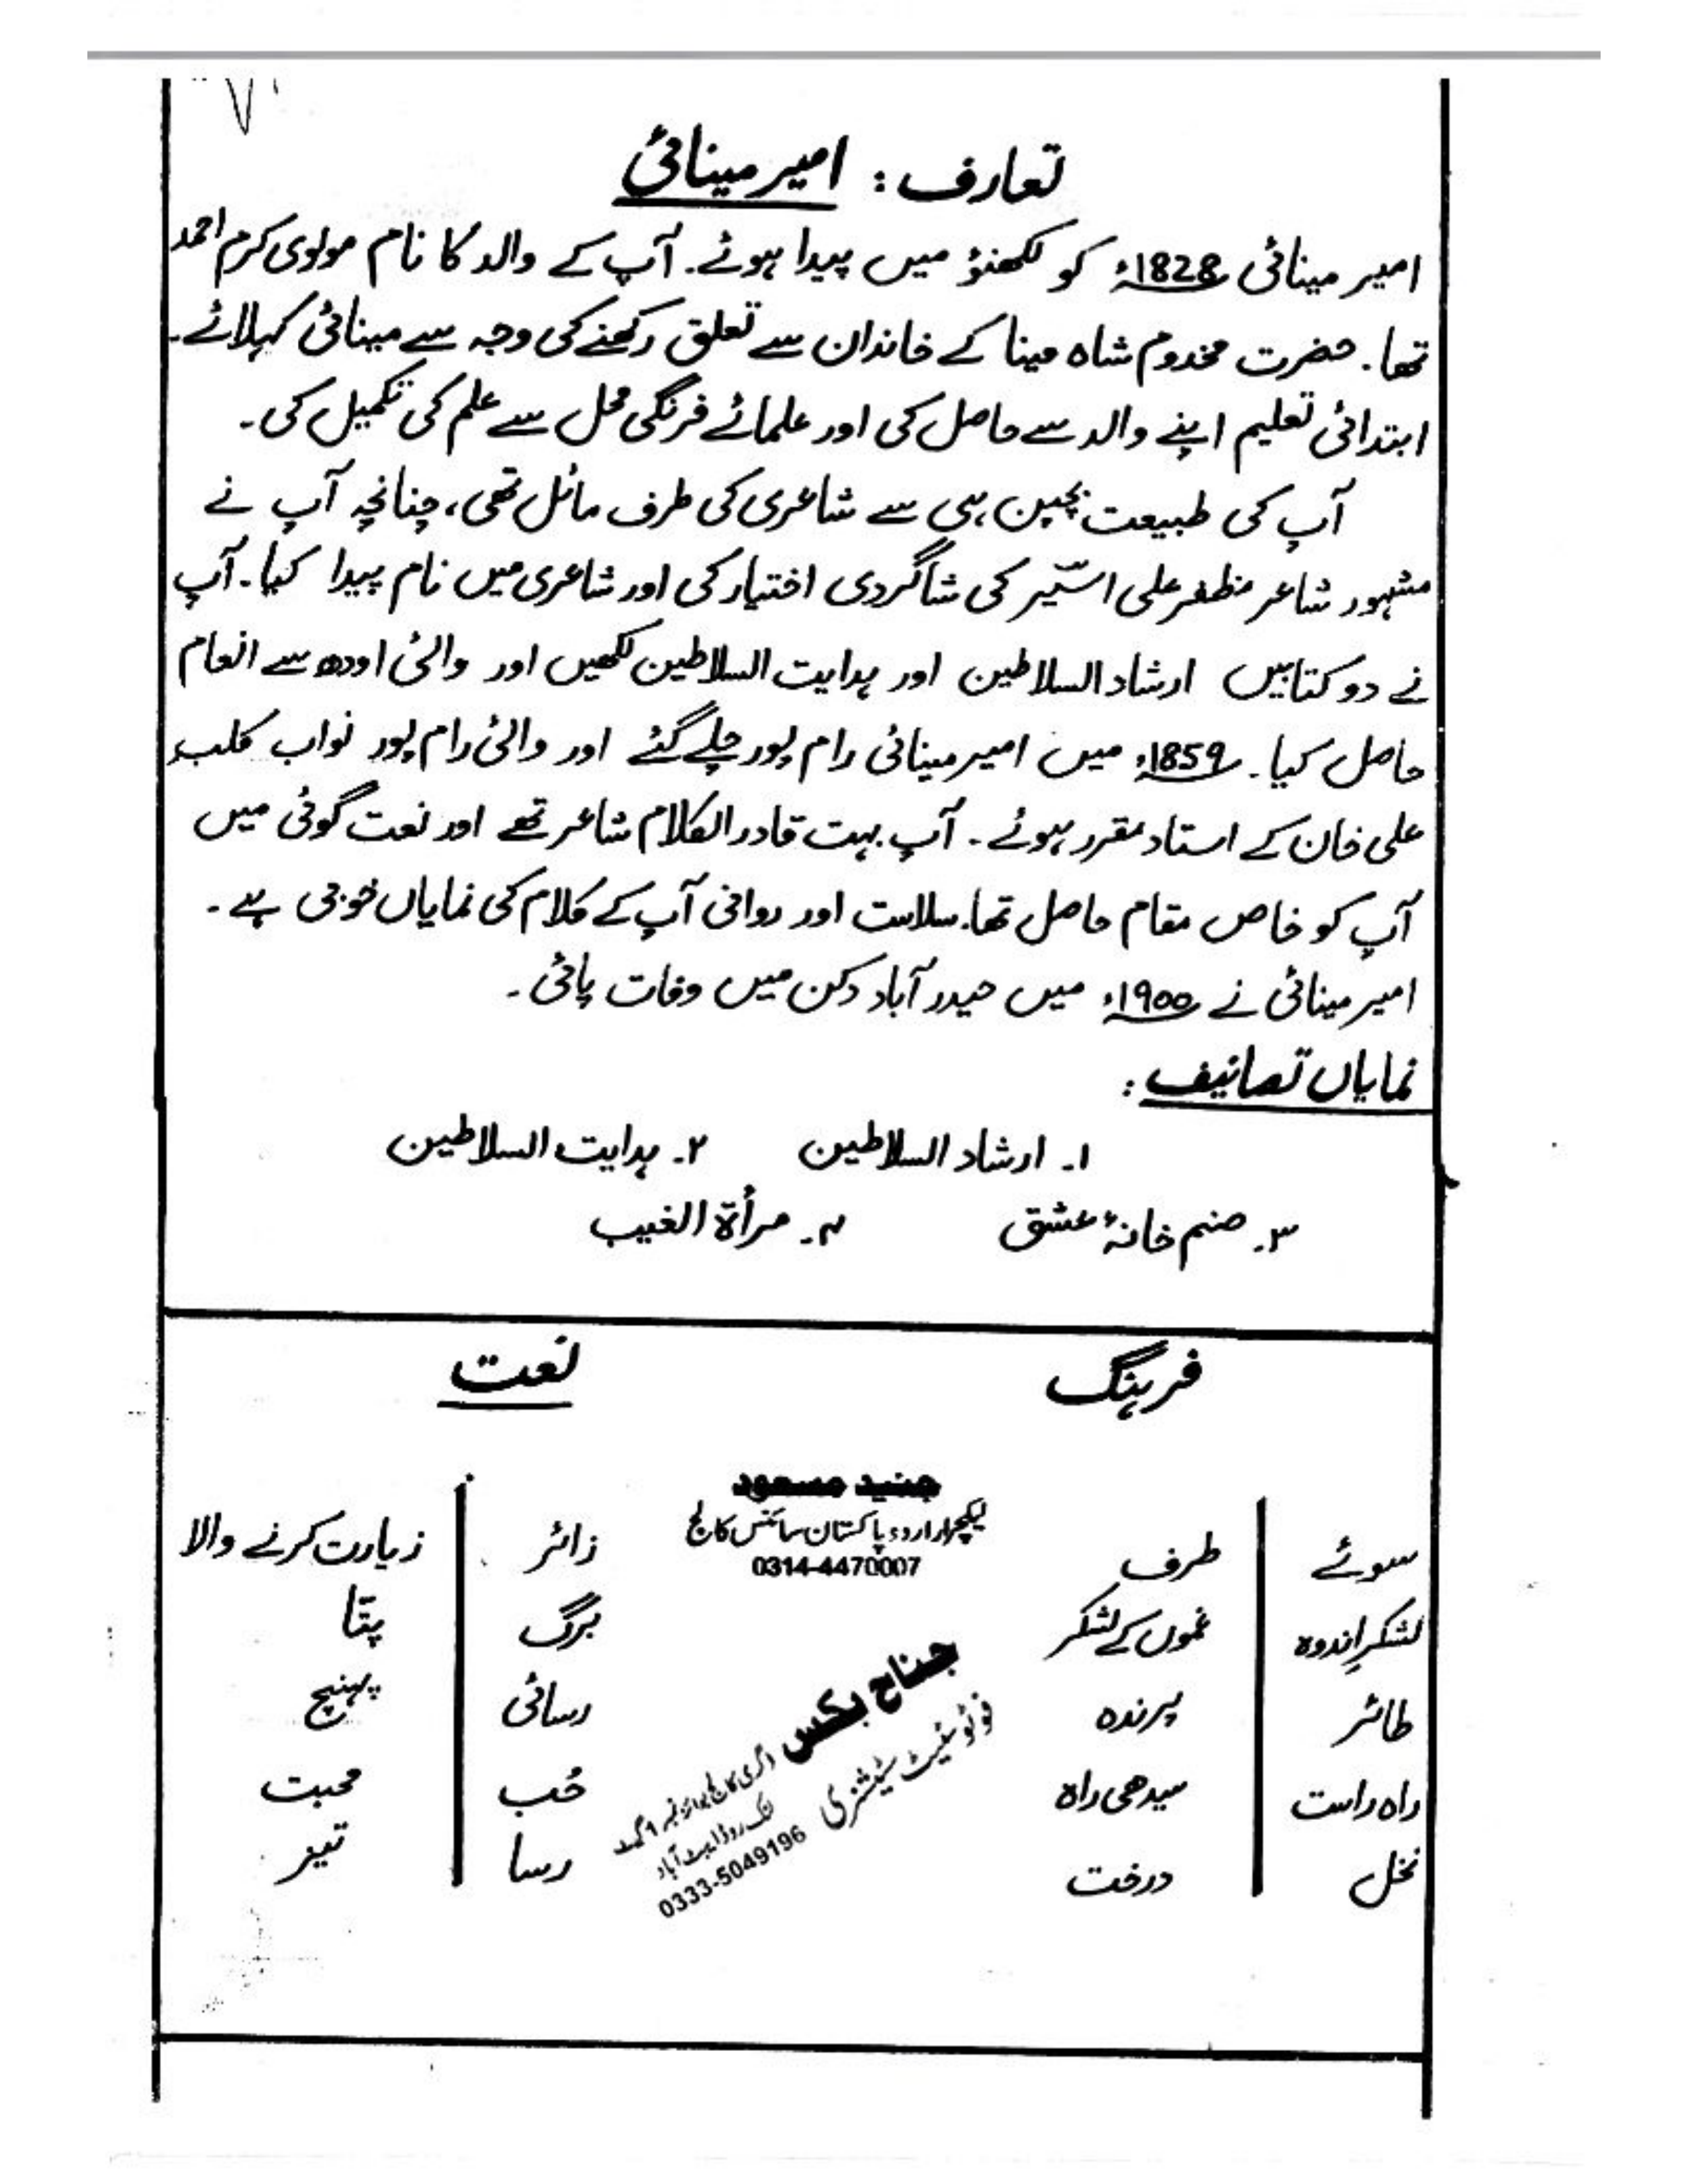 تعارف: امیر مینائی
امیر مینائی 1828ء کو لکھنؤ میں پیدا ہوئے۔ آپ کے والد کا نام مولوی کرم احمد
تھا۔ حضرت مخدوم شاہ مینا کے خاندان سے تعلق رکھنے کی وجہ سے مینائی کہلائے۔
ابتدائی تعلیم اپنے والد سے حاصل کی اور علمائے فرنگی محل سے علم کی تکمیل کی۔
آپ کی طبیعت بچپن ہی سے شاعری کی طرف مائل تھی، چنانچہ آپ نے
مشہور شاعر مظفر علی اسیؔر کی شاگردی اختیار کی اور شاعری میں نام پیدا کیا۔ آپ
نے دو کتابیں ارشاد السلاطین اور ہدایت السلاطین لکھیں اور والئ اودھ سے انعام
حاصل کیا۔ 1859ء میں امیر مینائی رام پور چلے گئے اور والئ رام پور نواب کلب
علی خان کے استاد مقرر ہوئے۔ آپ بہت قادر الکلام شاعر تھے اور نعت گوئی میں
آپ کو خاص مقام حاصل تھا۔ سلاست اور روانی آپ کے کلام کی نمایاں خوبی ہے۔
امیر مینائی نے 1900ء میں حیدر آباد دکن میں وفات پائی۔
نمایاں تصانیف:
۱۔ ارشاد السلاطین ۲۔ ہدایت السلاطین
۳۔ صنم خانۂ عشق ۴۔ مرأۃ الغیب
فرہنگ نعت
جنید مسعود
لیکچرار اردو پاکستان سائنس کالج
0314-4470007
سوئے طرف زائر زیارت کرنے والا
لشکرِ اندوہ غموں کے لشکر برگ پتّا
طائر پرندہ رسائی پہنچ
راہ راست سیدھی راہ حُب محبت
نخل درخت رسا تیز
جناح بکس
فوٹو سٹیٹ سٹیشنری
لنک روڈ ایبٹ آباد
0333-5049196